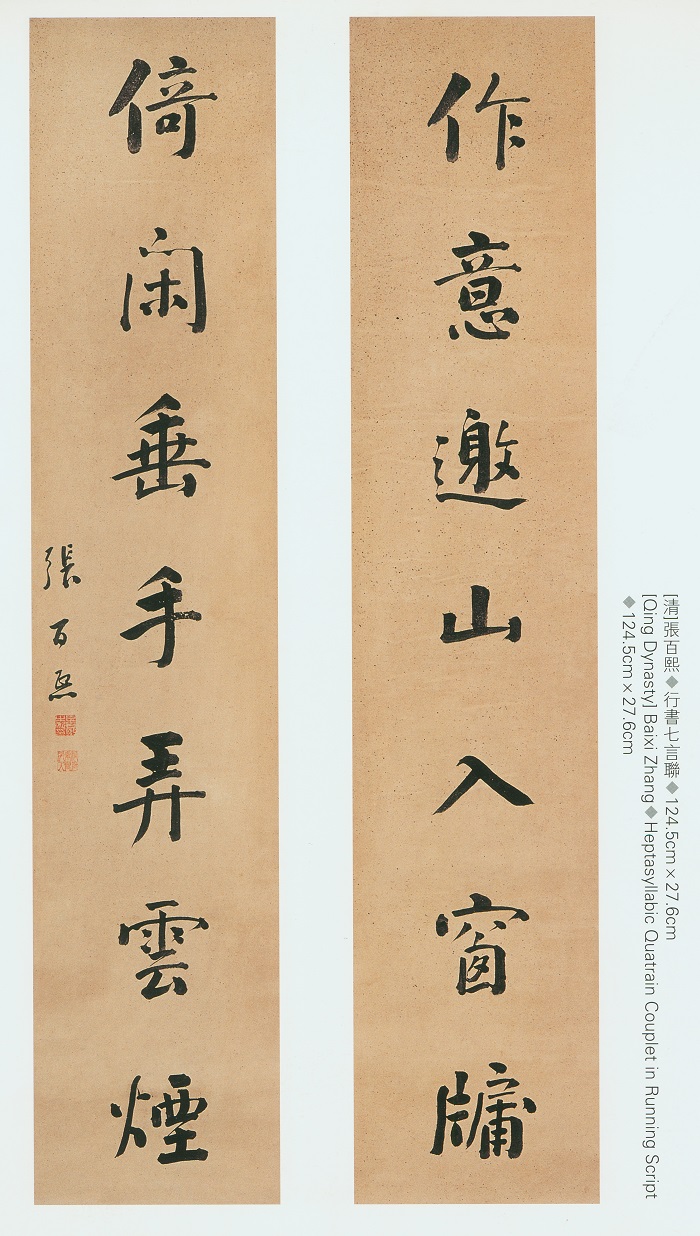 作意邀山入窗牖
倚闲垂手弄雲煙
張百熙
[清]張百熙◆行書七言聯◆124.5cm×27.6cm
[Qing Dynasty] Baixi Zhang◆Heptasyllabic Quatrain Couplet in Running Script
◆124.5cm×27.6cm